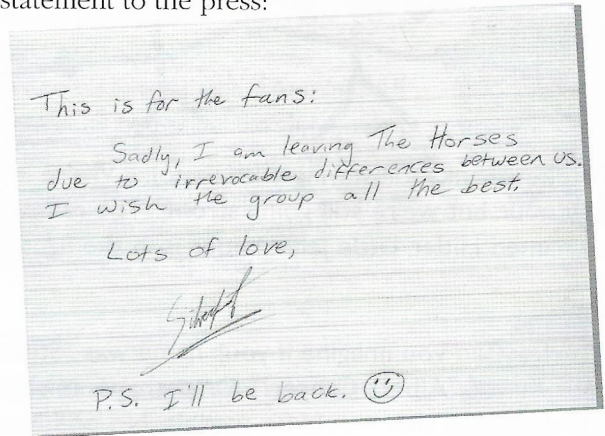 statement to the press:
This is for the fans:
Sadly, I am leaving The Horses
due to irrevocable differences between us.
I wish the group all the best.
Lots of love,
P.S. I'll be back.